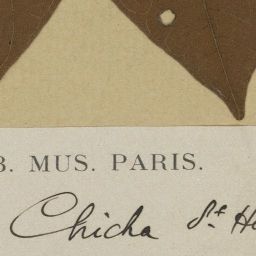 B. MUS. PARIS.
Chicha St. H